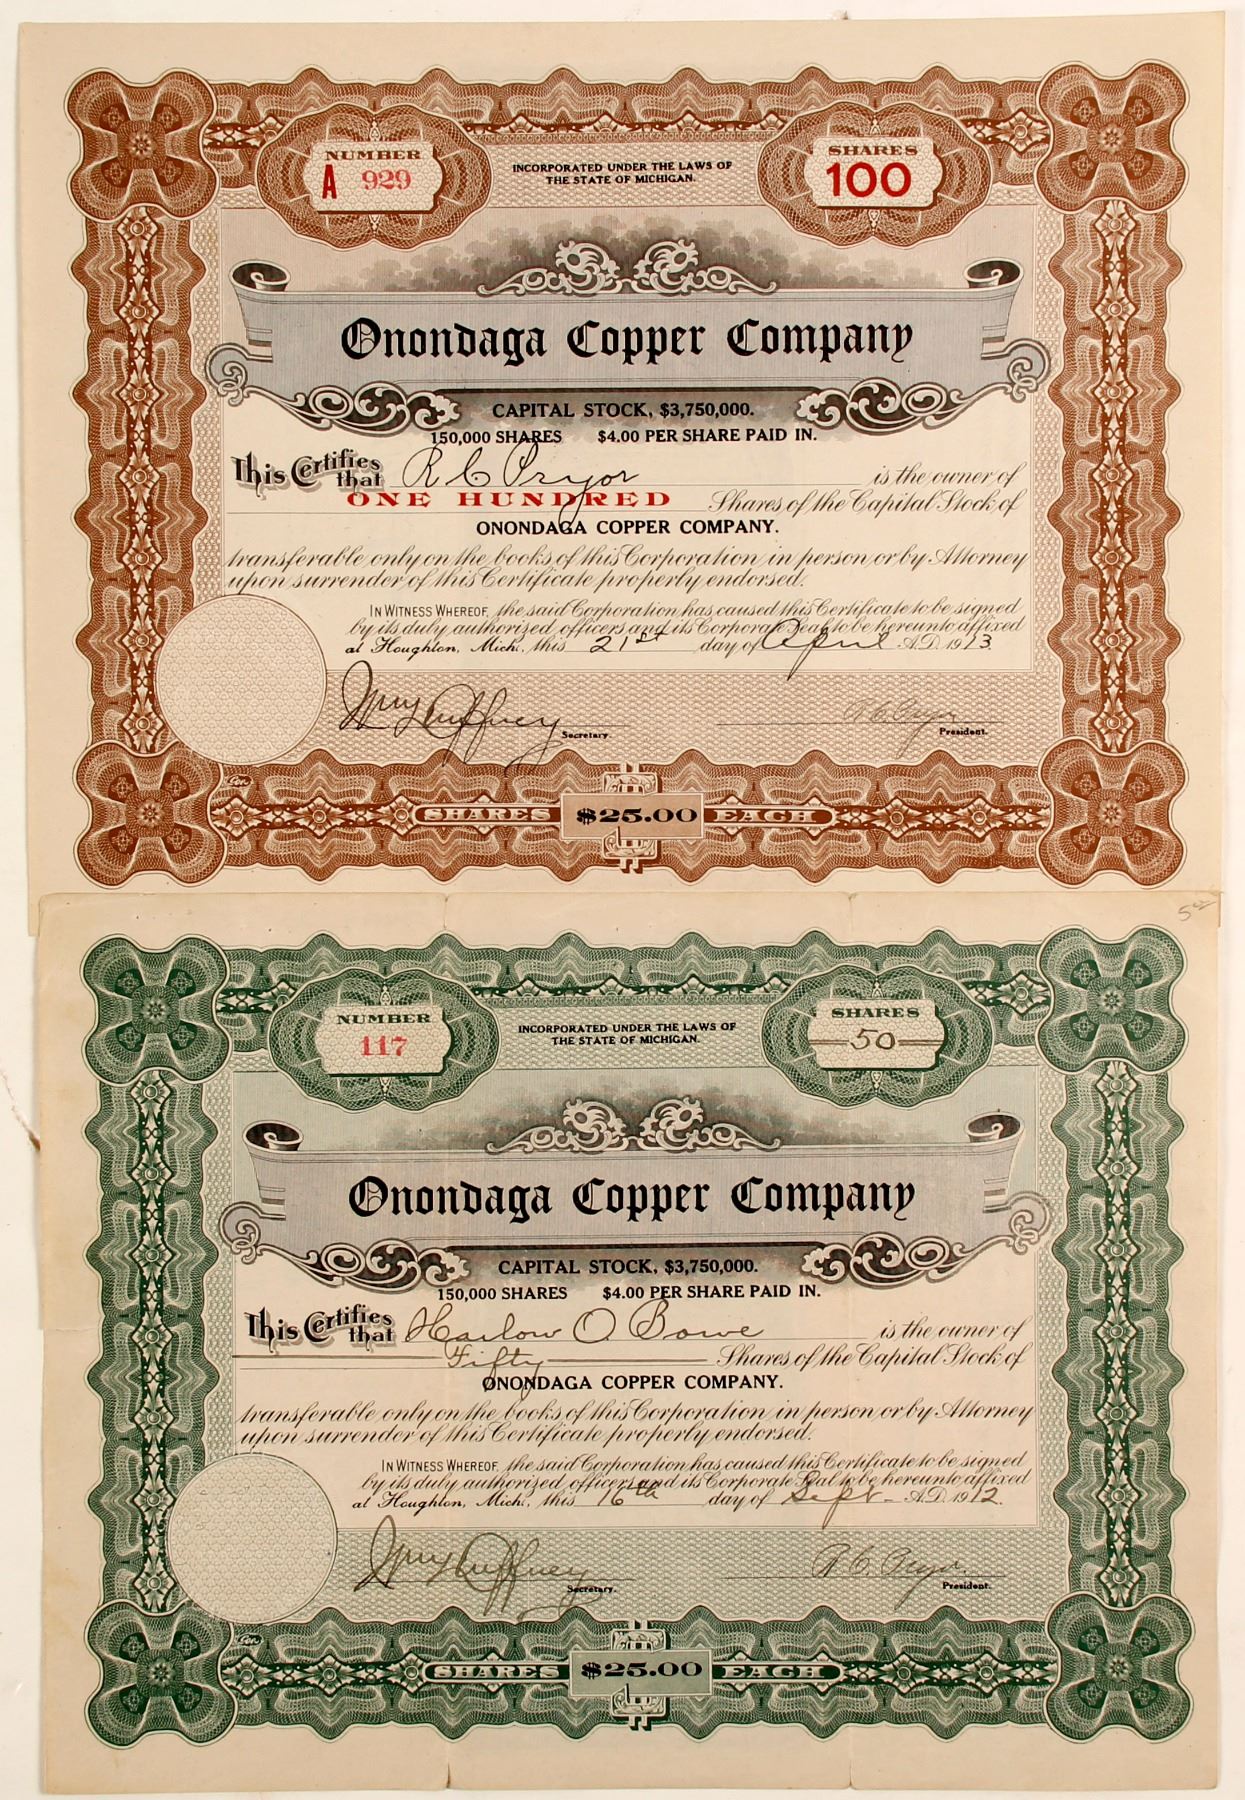 NUMBER
A 929
INCORPORATED UNDER THE LAWS OF
THE STATE OF MICHIGAN.
SHARES
100
Onondaga Copper Company
CAPITAL STOCK, $3,750,000.
150,000 SHARES $4.00 PER SHARE PAID IN.
This Certifies that R C Pryor is the owner of
ONE HUNDRED Shares of the Capital Stock of
ONONDAGA COPPER COMPANY.
transferable only on the books of this Corporation in person or by Attorney
upon surrender of this Certificate properly endorsed.
IN WITNESS WHEREOF, the said Corporation has caused this Certificate to be signed
by its duly authorized officers and its Corporate Seal to be hereunto affixed
at Houghton, Mich., this 21st day of April A.D. 1913.
Secretary.
R. C. Pryor
President.
SHARES $25.00 EACH
5
NUMBER
117
INCORPORATED UNDER THE LAWS OF
THE STATE OF MICHIGAN.
SHARES
50
Onondaga Copper Company
CAPITAL STOCK, $3,750,000.
150,000 SHARES $4.00 PER SHARE PAID IN.
This Certifies that Harlow O. Bowe is the owner of
Fifty Shares of the Capital Stock of
ONONDAGA COPPER COMPANY.
transferable only on the books of this Corporation in person or by Attorney
upon surrender of this Certificate properly endorsed.
IN WITNESS WHEREOF, the said Corporation has caused this Certificate to be signed
by its duly authorized officers and its Corporate Seal to be hereunto affixed
at Houghton, Mich., this 16th day of Sept. A.D. 1912.
Secretary.
R. C. Pryor.
President.
SHARES $25.00 EACH